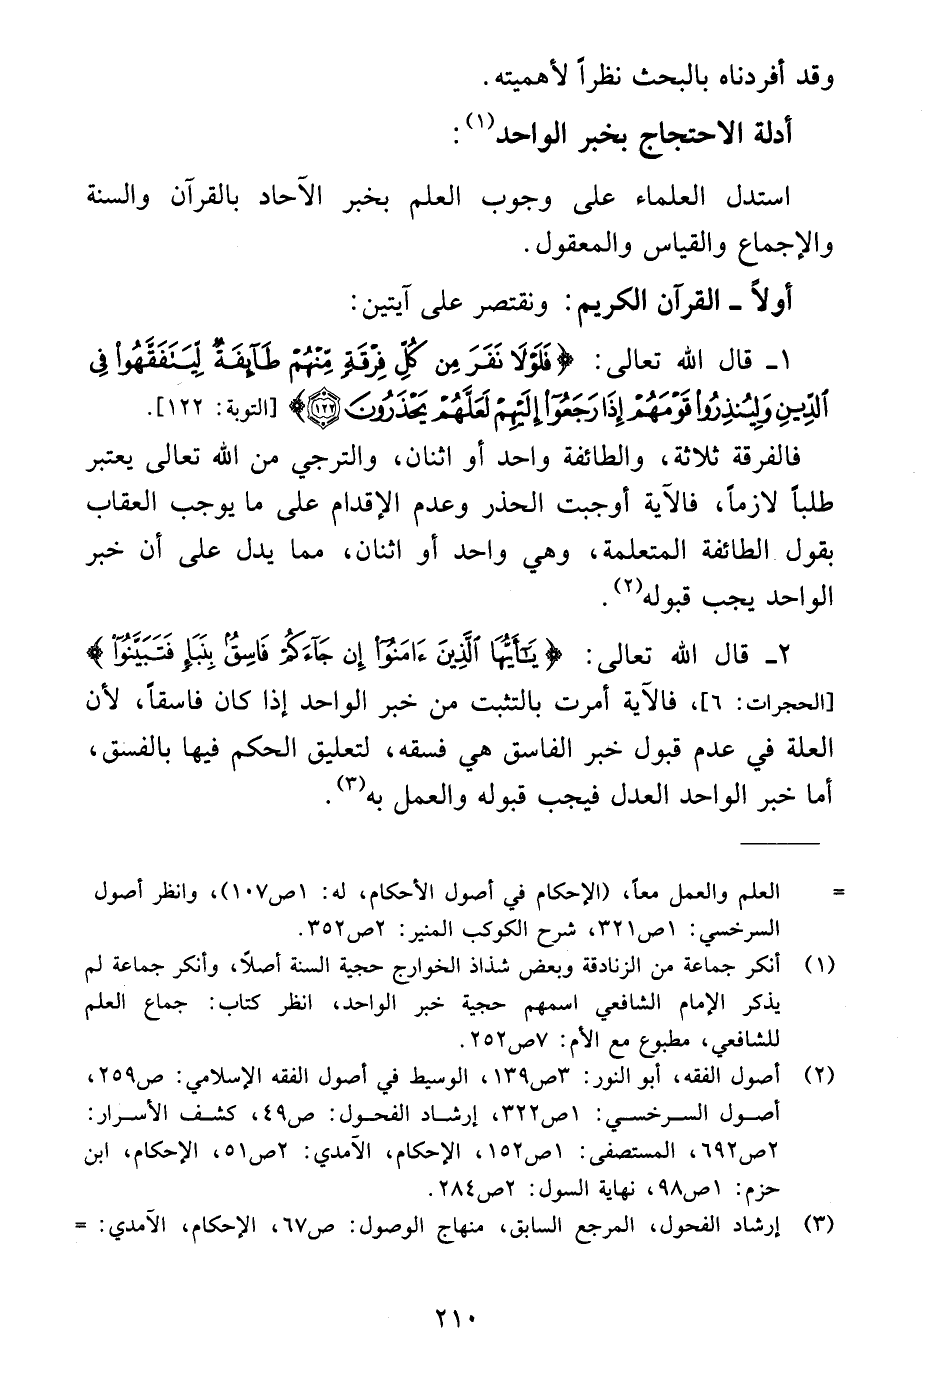 وقد أفردناه بالبحث نظراً لأهميته.
أدلة الاحتجاج بخبر الواحد(١):
استدل العلماء على وجوب العلم بخبر الآحاد بالقرآن والسنة
والإجماع والقياس والمعقول.
أولاً ـ القرآن الكريم: ونقتصر على آيتين:
١ـ قال الله تعالى: ﴿فَلَوْلَا نَفَرَ مِن كُلِّ فِرْقَةٍ مِّنْهُمْ طَآئِفَةٌ لِّيَتَفَقَّهُوا۟ فِى
ٱلدِّينِ وَلِيُنذِرُوا۟ قَوْمَهُمْ إِذَا رَجَعُوٓا۟ إِلَيْهِمْ لَعَلَّهُمْ يَحْذَرُونَ ۝١٢٢﴾ [التوبة: ١٢٢].
فالفرقة ثلاثة، والطائفة واحد أو اثنان، والترجي من الله تعالى يعتبر
طلباً لازماً، فالآية أوجبت الحذر وعدم الإقدام على ما يوجب العقاب
بقول الطائفة المتعلمة، وهي واحد أو اثنان، مما يدل على أن خبر
الواحد يجب قبوله(٢).
٢ـ قال الله تعالى: ﴿يَـٰٓأَيُّهَا ٱلَّذِينَ ءَامَنُوٓا۟ إِن جَآءَكُمْ فَاسِقٌۢ بِنَبَإٍ فَتَبَيَّنُوٓا۟﴾
[الحجرات: ٦]، فالآية أمرت بالتثبت من خبر الواحد إذا كان فاسقاً، لأن
العلة في عدم قبول خبر الفاسق هي فسقه، لتعليق الحكم فيها بالفسق،
أما خبر الواحد العدل فيجب قبوله والعمل به(٣).
= العلم والعمل معاً، (الإحكام في أصول الأحكام، له: ١ص١٠٧)، وانظر أصول
السرخسي: ١ص٣٢١، شرح الكوكب المنير: ٢ص٣٥٢.
(١) أنكر جماعة من الزنادقة وبعض شذاذ الخوارج حجية السنة أصلاً، وأنكر جماعة لم
يذكر الإمام الشافعي اسمهم حجية خبر الواحد، انظر كتاب: جماع العلم
للشافعي، مطبوع مع الأم: ٧ص٢٥٢.
(٢) أصول الفقه، أبو النور: ٣ص١٣٩، الوسيط في أصول الفقه الإسلامي: ص٢٥٩،
أصول السرخسي: ١ص٣٢٢، إرشاد الفحول: ص٤٩، كشف الأسرار:
٢ص٦٩٢، المستصفى: ١ص١٥٢، الإحكام، الآمدي: ٢ص٥١، الإحكام، ابن
حزم: ١ص٩٨، نهاية السول: ٢ص٢٨٤.
(٣) إرشاد الفحول، المرجع السابق، منهاج الوصول: ص٦٧، الإحكام، الآمدي: =
٢١٠